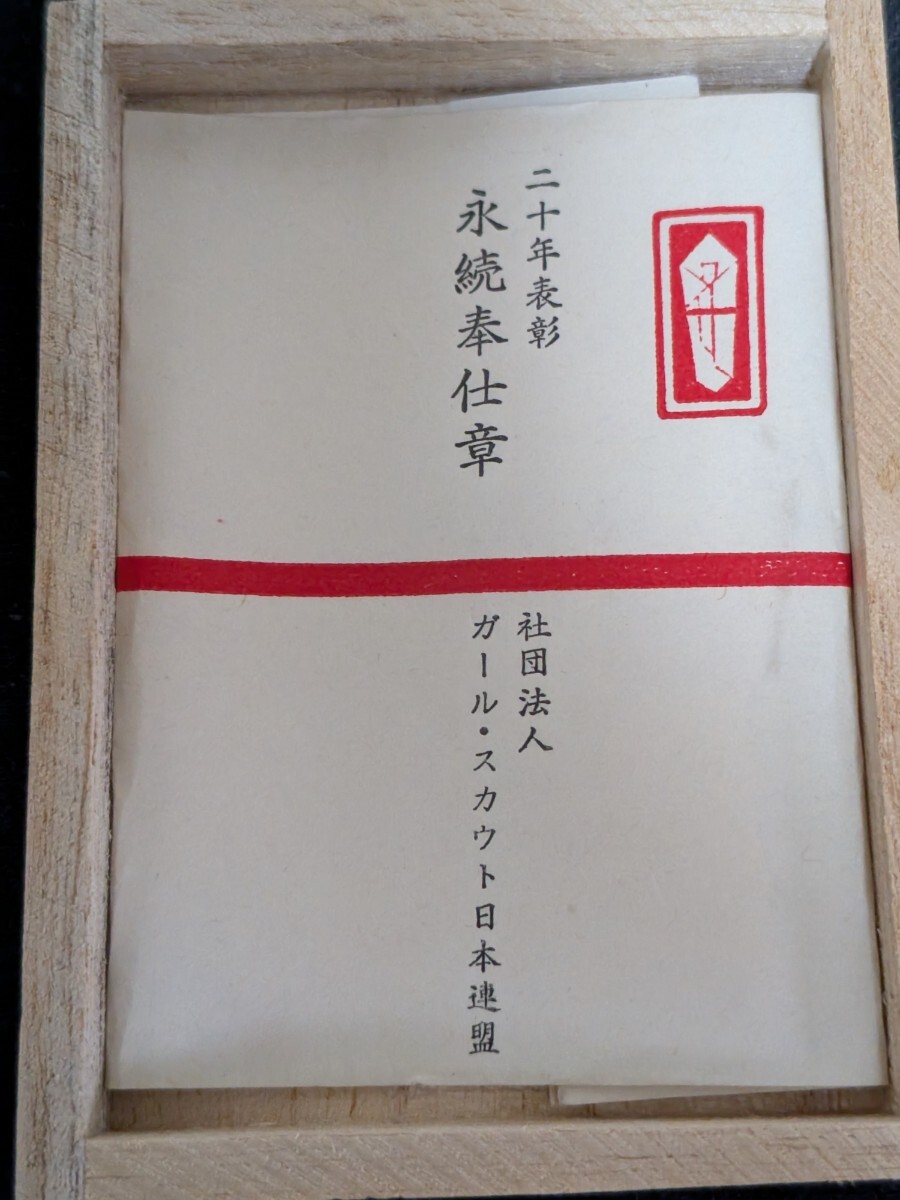 二十年表彰
永続奉仕章
社団法人
ガール・スカウト日本連盟